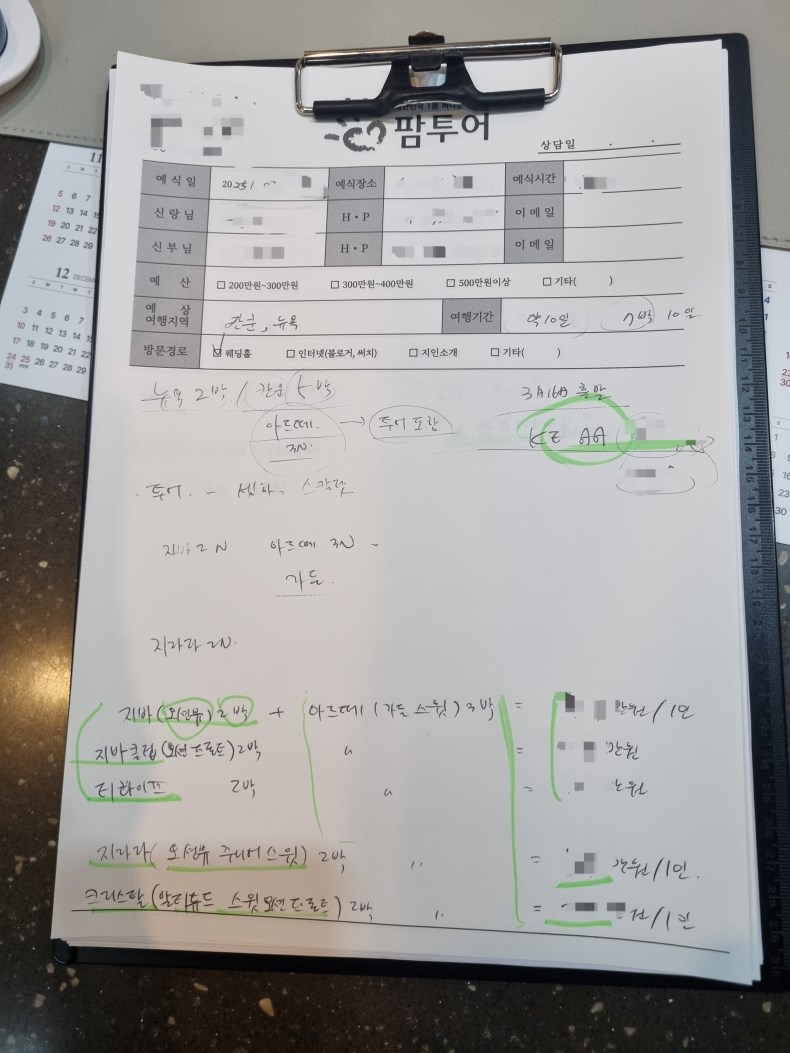 팜투어
상담일 . .
예식일 2025/ 예식장소 예식시간
신랑님 H·P 이메일
신부님 H·P 이메일
예 산 □ 200만원~300만원 □ 300만원~400만원 □ 500만원이상 □ 기타( )
예 상 여행지역 칸쿤, 뉴욕 여행기간 약10일 7박 10일
방문경로 ☑ 웨딩홀 □ 인터넷(블로거, 써치) □ 지인소개 □ 기타( )
뉴욕 2박 / 칸쿤 5박
3月16日 출발
아르떼. 3N. → 투어 포함
KE AA
투어 - 셀하. 스칼렛
지바 2N 아르떼 3N -
가든.
지라라 2N.
지바 (오션뷰) 2박 + 아르떼 (가든 스윗) 3박 = 만원/1인
지바클럽 (오션프론트) 2박 〃 = 만원
티라이프 2박 〃 = 만원
지라라 (오션뷰 주니어 스윗) 2박 〃 = 만원/1인.
크리스탈 (알티튜드 스윗 오션프론트) 2박 〃 = /1인
11
5 6 7
12 13 14
19 20 21 22
26 27 28 29
12 DECEMBER
3 4 5 6 7 8
10 11 12 13 14
17 18 19 20 21
24 25 26 27 28
31